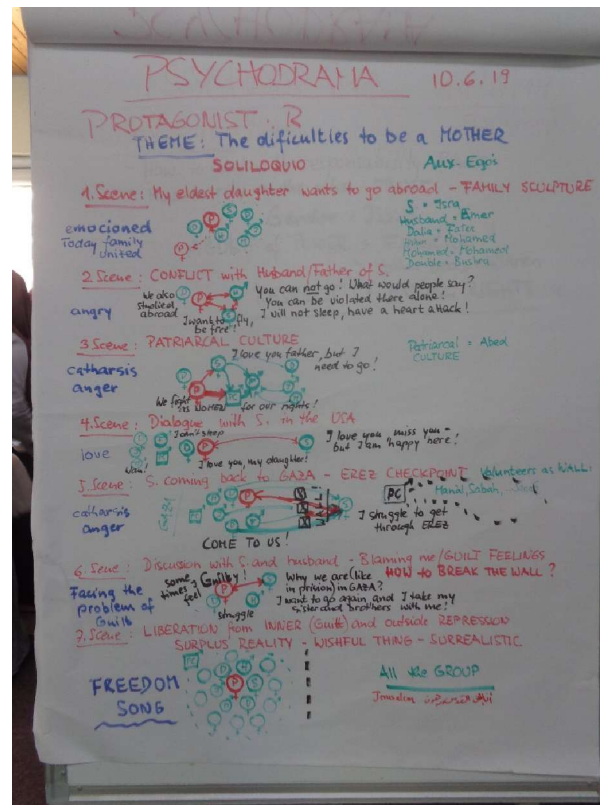 PSYCHODRAMA 10.6.19
PROTAGONIST: B
THEME: The dificulties to be a MOTHER
SOLILOQUIO Aux-Egos
1. Scene: My eldest daughter wants to go abroad - FAMILY SCULPTURE
emocioned
Today family
United
S = Isra
Husband = Emer
Dalia =
= Mohamed
Mohamed = Mohamed
Double = Bushra
2. Scene: CONFLICT with Husband/Father of S.
angry
We also
studied
abroad
You can not go! What would people say?
You can be violated there alone!
I will not sleep, have a heart attack!
I want to fly,
be free!
3 Scene: PATRIARCAL CULTURE
Patriarcal = Abed
CULTURE
catharsis
anger
I love you father, but I
need to go!
We fight
as WOMEN for our rights!
4. Scene: Dialogue with S. in the USA
love
I don't sleep
I love you, my daughter!
I love you, miss you -
but I am happy here!
5 Scene: S. coming back to GAZA - EREZ CHECKPOINT Volunteers as WALL:
Manal, Sabah,
catharsis
anger
GAZA
WALL
PC
COME TO US!
I struggle to get
through EREZ
6. Scene: Discussion with S. and husband - Blaming me/GUILT FEELINGS
HOW to BREAK THE WALL?
Facing the
problem of
Guilt
some
times I
feel Guilty!
struggle
Why we are (like
in prision) in GAZA?
I want to go again and I take my
sister and brothers with me!
7. Scene: LIBERATION from INNER (Guilt) and outside REPRESSION
SURPLUS REALITY - WISHFUL THING - SURREALISTIC
FREEDOM
SONG
All the GROUP
Jerusalem